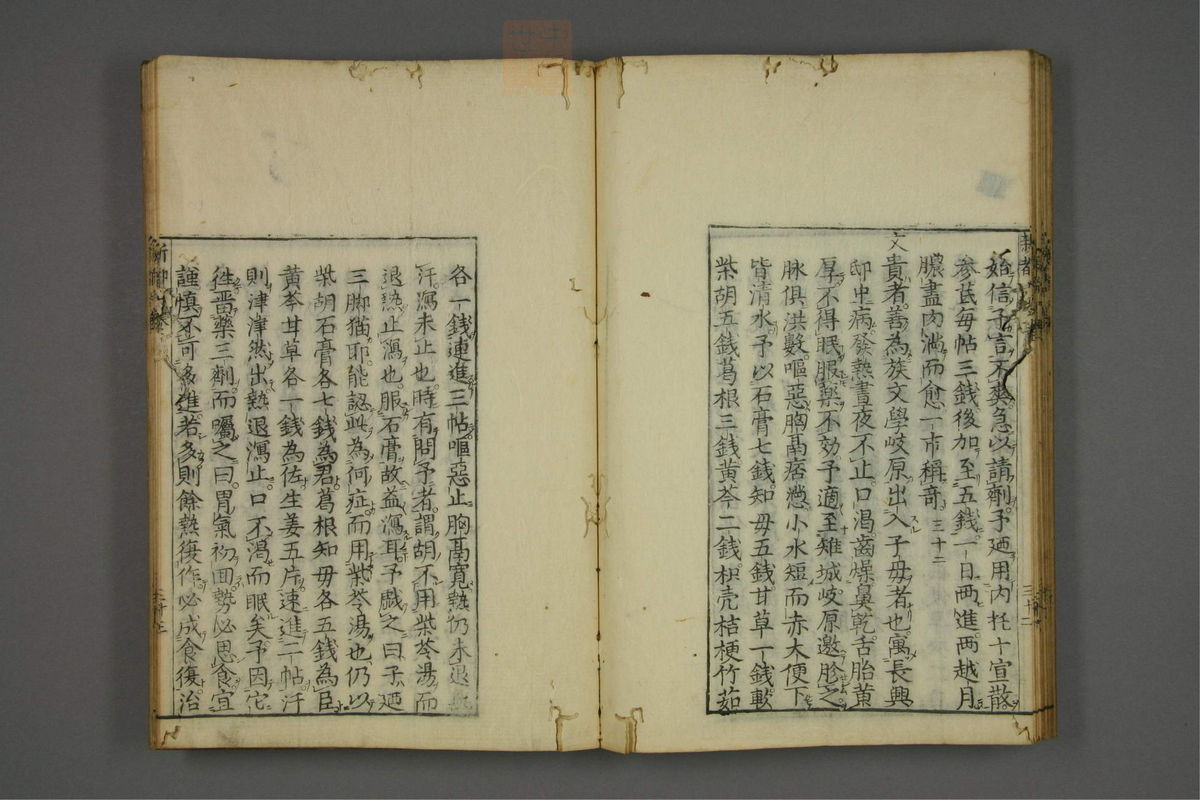 始信予言不繆急以請劑予廼用内托十宣散
參芪每帖三錢後加至五錢一日兩進兩越月
膿盡肉滿而愈一市稱奇三十二
文貴者善為族文學岐原出入子母者也寓長興
邸中病發熱晝夜不止口渴齒燥鼻乾舌胎黄
厚不得眠服藥不効予適至雉城岐原邀胗之
脉俱洪數嘔惡胸鬲痞懣小水短而赤大便下
皆清水予以石膏七錢知母五錢甘草一錢軟
柴胡五錢葛根三錢黄芩二錢枳壳桔梗竹茹
各一錢連進三帖嘔惡止胸鬲寛熱仍未退
汗瀉未止也時有問予者謂胡不用柴苓湯而
退熱止瀉也服石膏故益瀉耳予戲之曰子廼
三脚猫耶能認此為何症而用柴苓湯也仍以
柴胡石膏各七錢為君葛根知母各五錢為臣
黄芩甘草各一錢為佐生姜五片速進二帖汗
則津津然出熱退瀉止口不渴而眠矣予因佗
徃畱藥三劑而囑之曰胃氣初囬勢必思食宜
謹慎不可多進者多則餘熱復作必成食復治